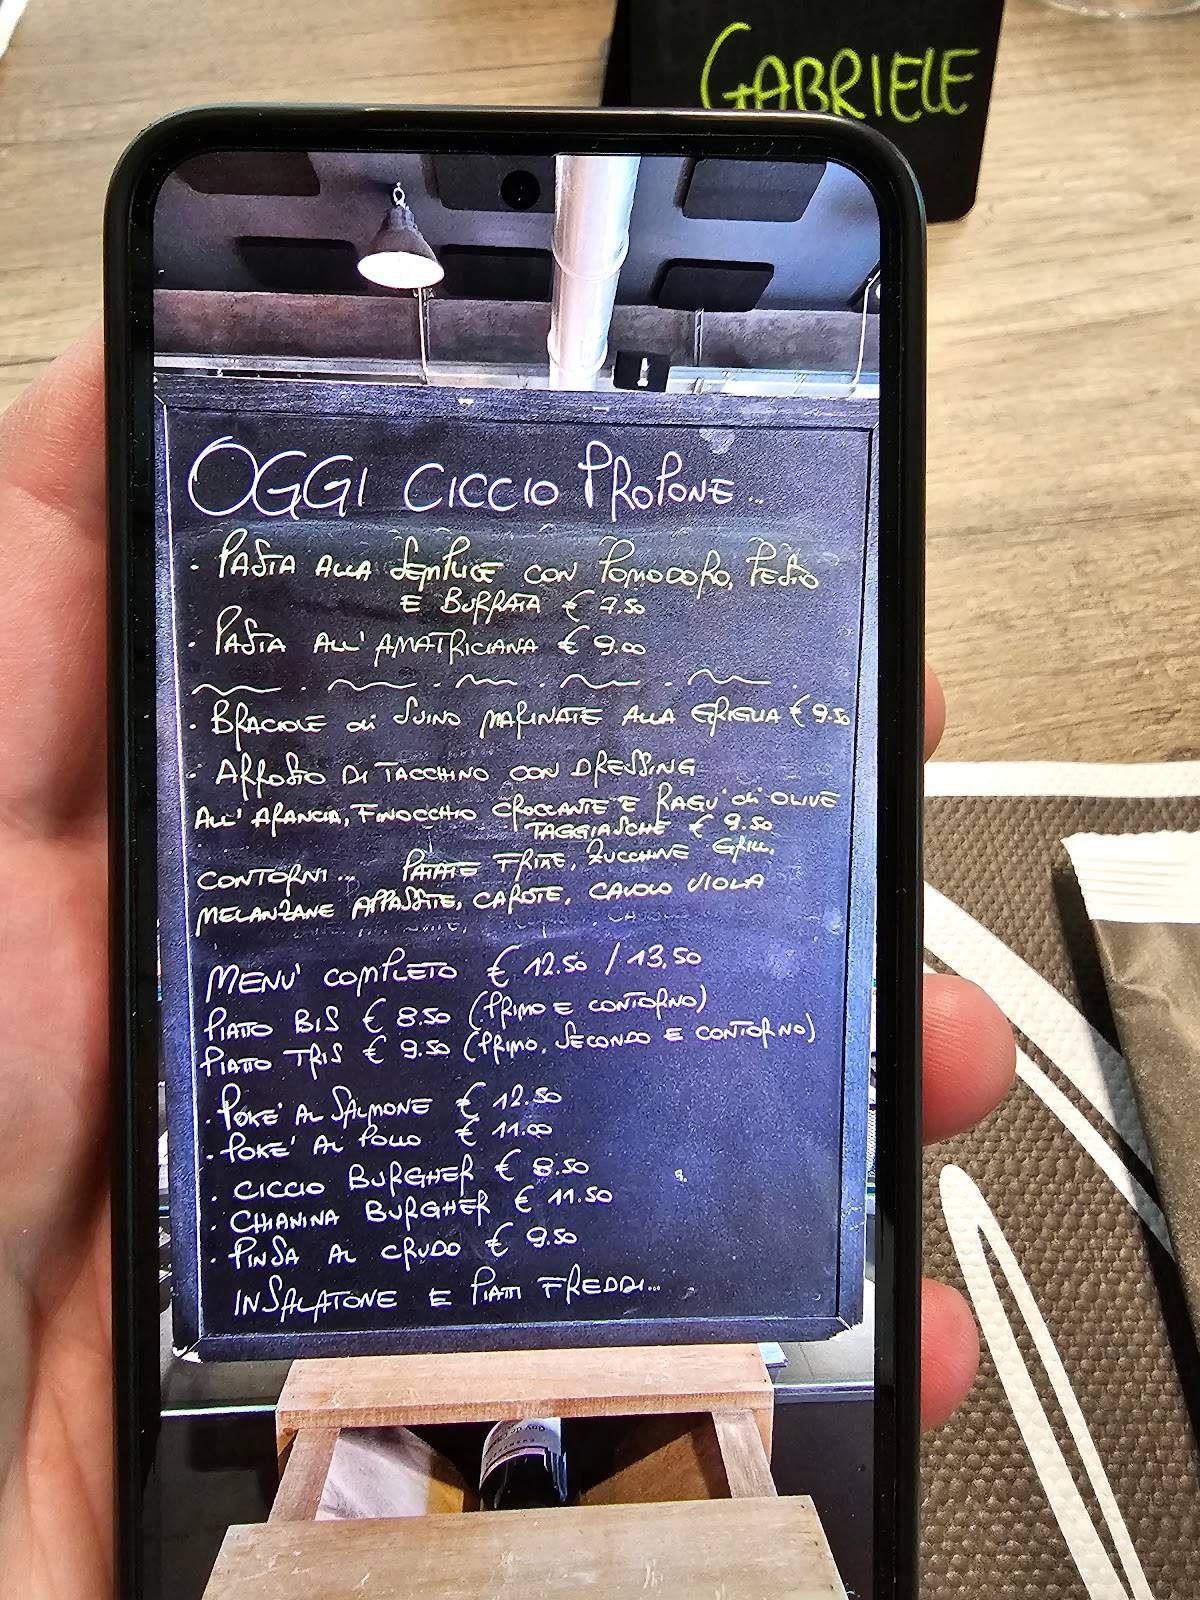 GABRIELE
OGGI CICCIO PROPONE...
· PASTA ALLA SEMPLICE CON POMODORO, PESTO
E BURRATA € 7.50
· PASTA ALL'AMATRICIANA € 9.00
· BRACIOLE di SUINO MARINATE ALLA GRIGLIA € 9.50
· ARROSTO DI TACCHINO CON DRESSING
ALL'ARANCIA, FINOCCHIO CROCCANTE E RAGU' di OLIVE
TAGGIASCHE € 9.50
CONTORNI... PATATE FRITTE, ZUCCHINE GRILL.
MELANZANE APPASSITE, CAROTE, CAVOLO VIOLA
MENU' COMPLETO € 12.50 / 13.50
PIATTO BIS € 8.50 (PRIMO E CONTORNO)
PIATTO TRIS € 9.50 (PRIMO, SECONDO E CONTORNO)
· POKE' AL SALMONE € 12.50
· POKE' AL POLLO € 11.00
· CICCIO BURGHER € 8.50
· CHIANINA BURGHER € 11.50
· PINSA AL CRUDO € 9.50
INSALATONE E PIATTI FREDDI...